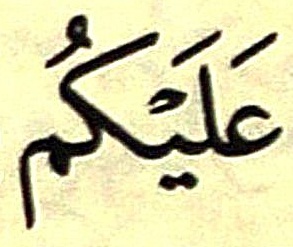 عَلَيْكُم